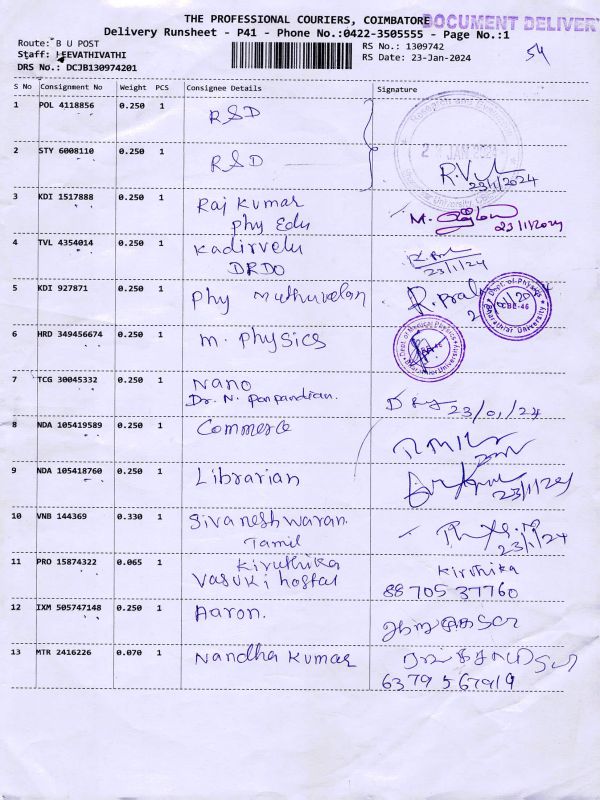 THE PROFESSIONAL COURIERS, COIMBATORE
DOCUMENT DELIVERY
Delivery Runsheet - P41 - Phone No.:0422-3505555 - Page No.:1
Route: B U POST
Staff: JEEVATHIVATHI
DRS No.: DCJB130974201
RS No.: 1309742
RS Date: 23-Jan-2024
54
S No Consignment No Weight PCS Consignee Details Signature
1 POL 4118856 0.250 1 RSD
2 STY 6008110 0.250 1 RSD 23/1/2024
3 KDI 1517888 0.250 1 Raj Kumar
Phy Edu 23/1/2024
4 TVL 4354014 0.250 1 Kadirvelu
DRDO 23/1/24
5 KDI 927871 0.250 1 Phy Muthuvelan
Dept. of Physics
CBE-46
Bharathiar University
6 HRD 349456674 0.250 1 M. Physics
Dept of Medical Physics
Bharathiar University
7 TCG 30045332 0.250 1 Nano
Dr. N. Ponpandian. 23/01/24
8 NDA 105419589 0.250 1 Commerce
9 NDA 105418760 0.250 1 Librarian 23/1/2024
10 VNB 144369 0.330 1 Sivaneshwaran.
Tamil 23/1/24
11 PRO 15874322 0.065 1 Kiruthika
Vasuki hostal
Kiruthika
88705 37760
12 IXM 505747148 0.250 1 Aaron.
13 MTR 2416226 0.070 1 Nandha Kumar
6379567919